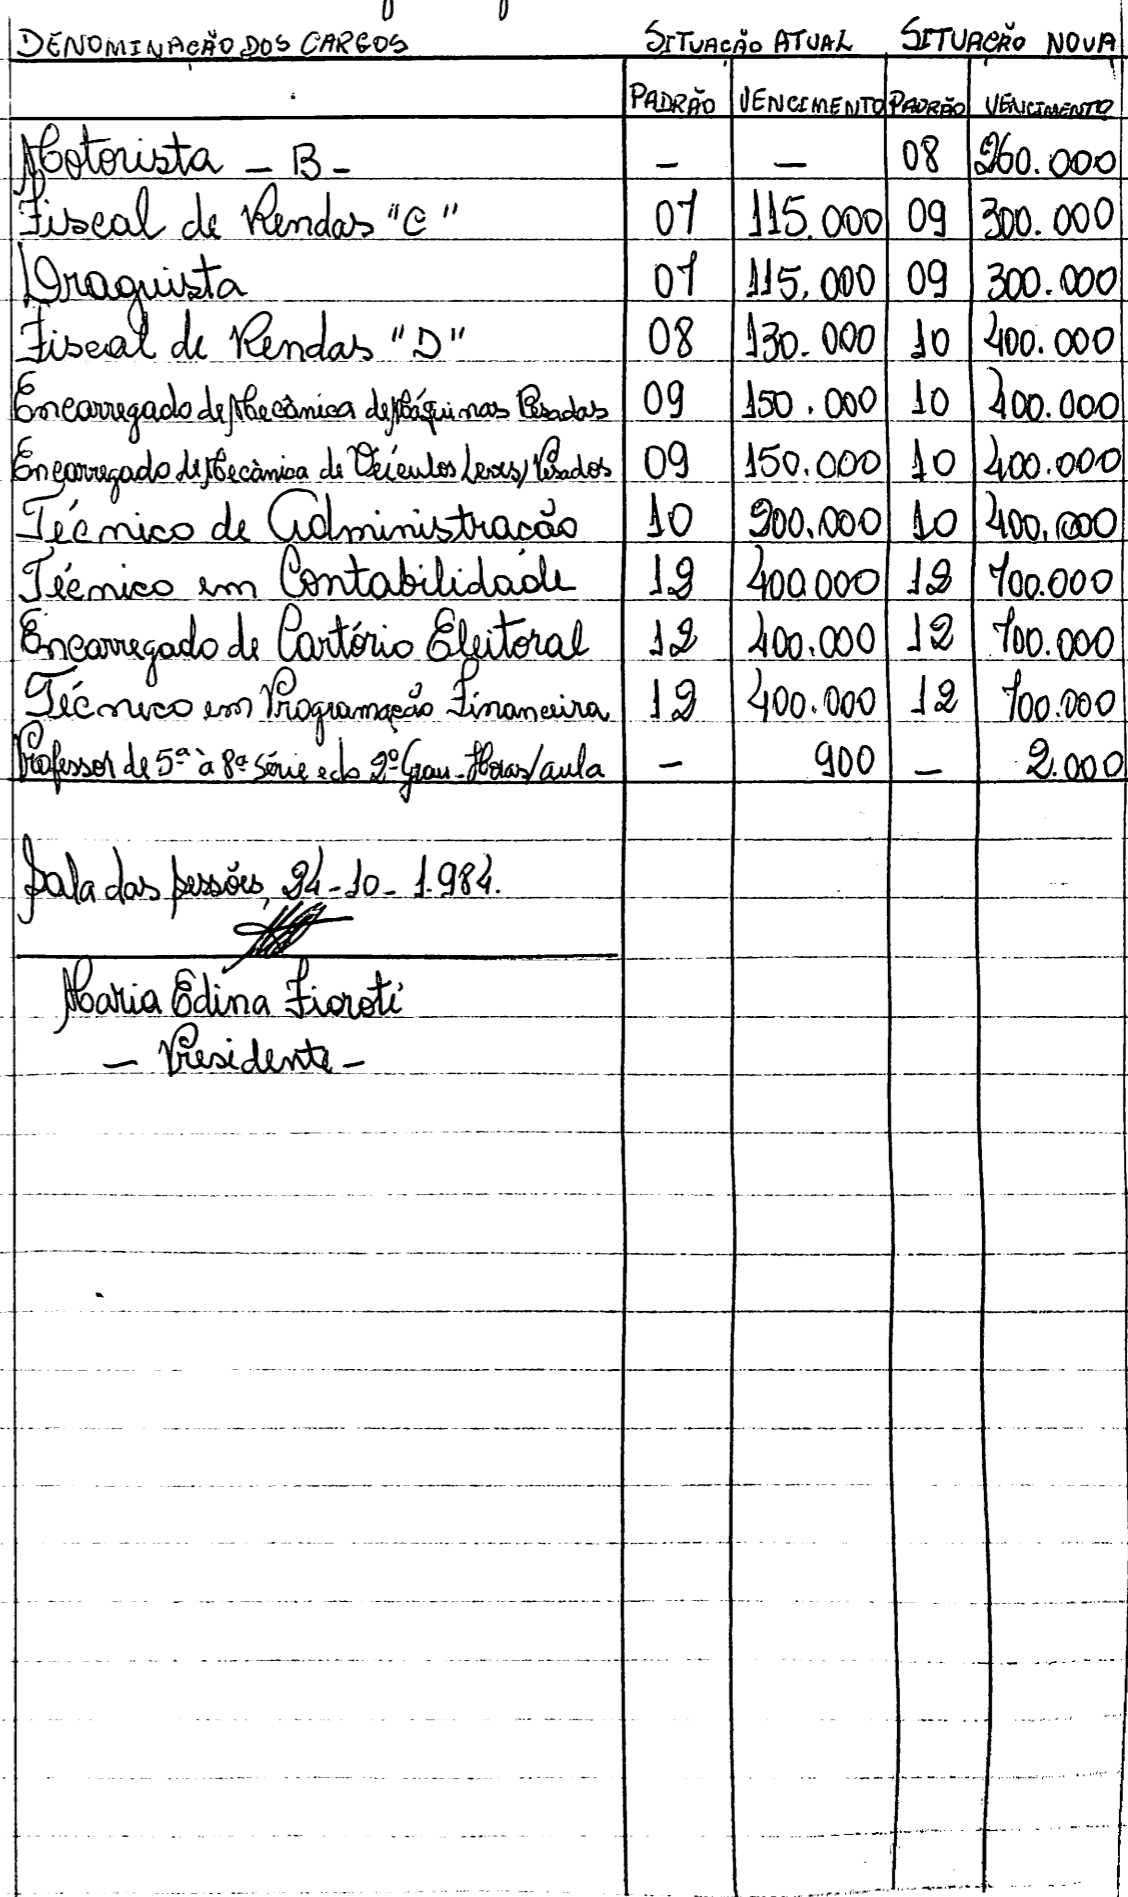 DENOMINAÇÃO DOS CARGOS SITUAÇÃO ATUAL SITUAÇÃO NOVA
PADRÃO VENCIMENTO PADRÃO VENCIMENTO
Motorista - B - - - 08 260.000
Fiscal de Rendas "C" 07 115.000 09 300.000
Draguista 07 115.000 09 300.000
Fiscal de Rendas "D" 08 130.000 10 400.000
Encarregado de Mecânica de Máquinas Pesadas 09 150.000 10 400.000
Encarregado de Mecânica de Veículos Leves/Pesados 09 150.000 10 400.000
Técnico de Administração 10 200.000 10 400.000
Técnico em Contabilidade 12 400.000 12 700.000
Encarregado de Cartório Eleitoral 12 400.000 12 700.000
Técnico em Programação Financeira 12 400.000 12 700.000
Professor de 5ª à 8ª Série e do 2º Grau - Horas/aula - 900 - 2.000
Sala das Sessões, 24-10-1.984.
Maria Edina Fioroti
- Presidente -